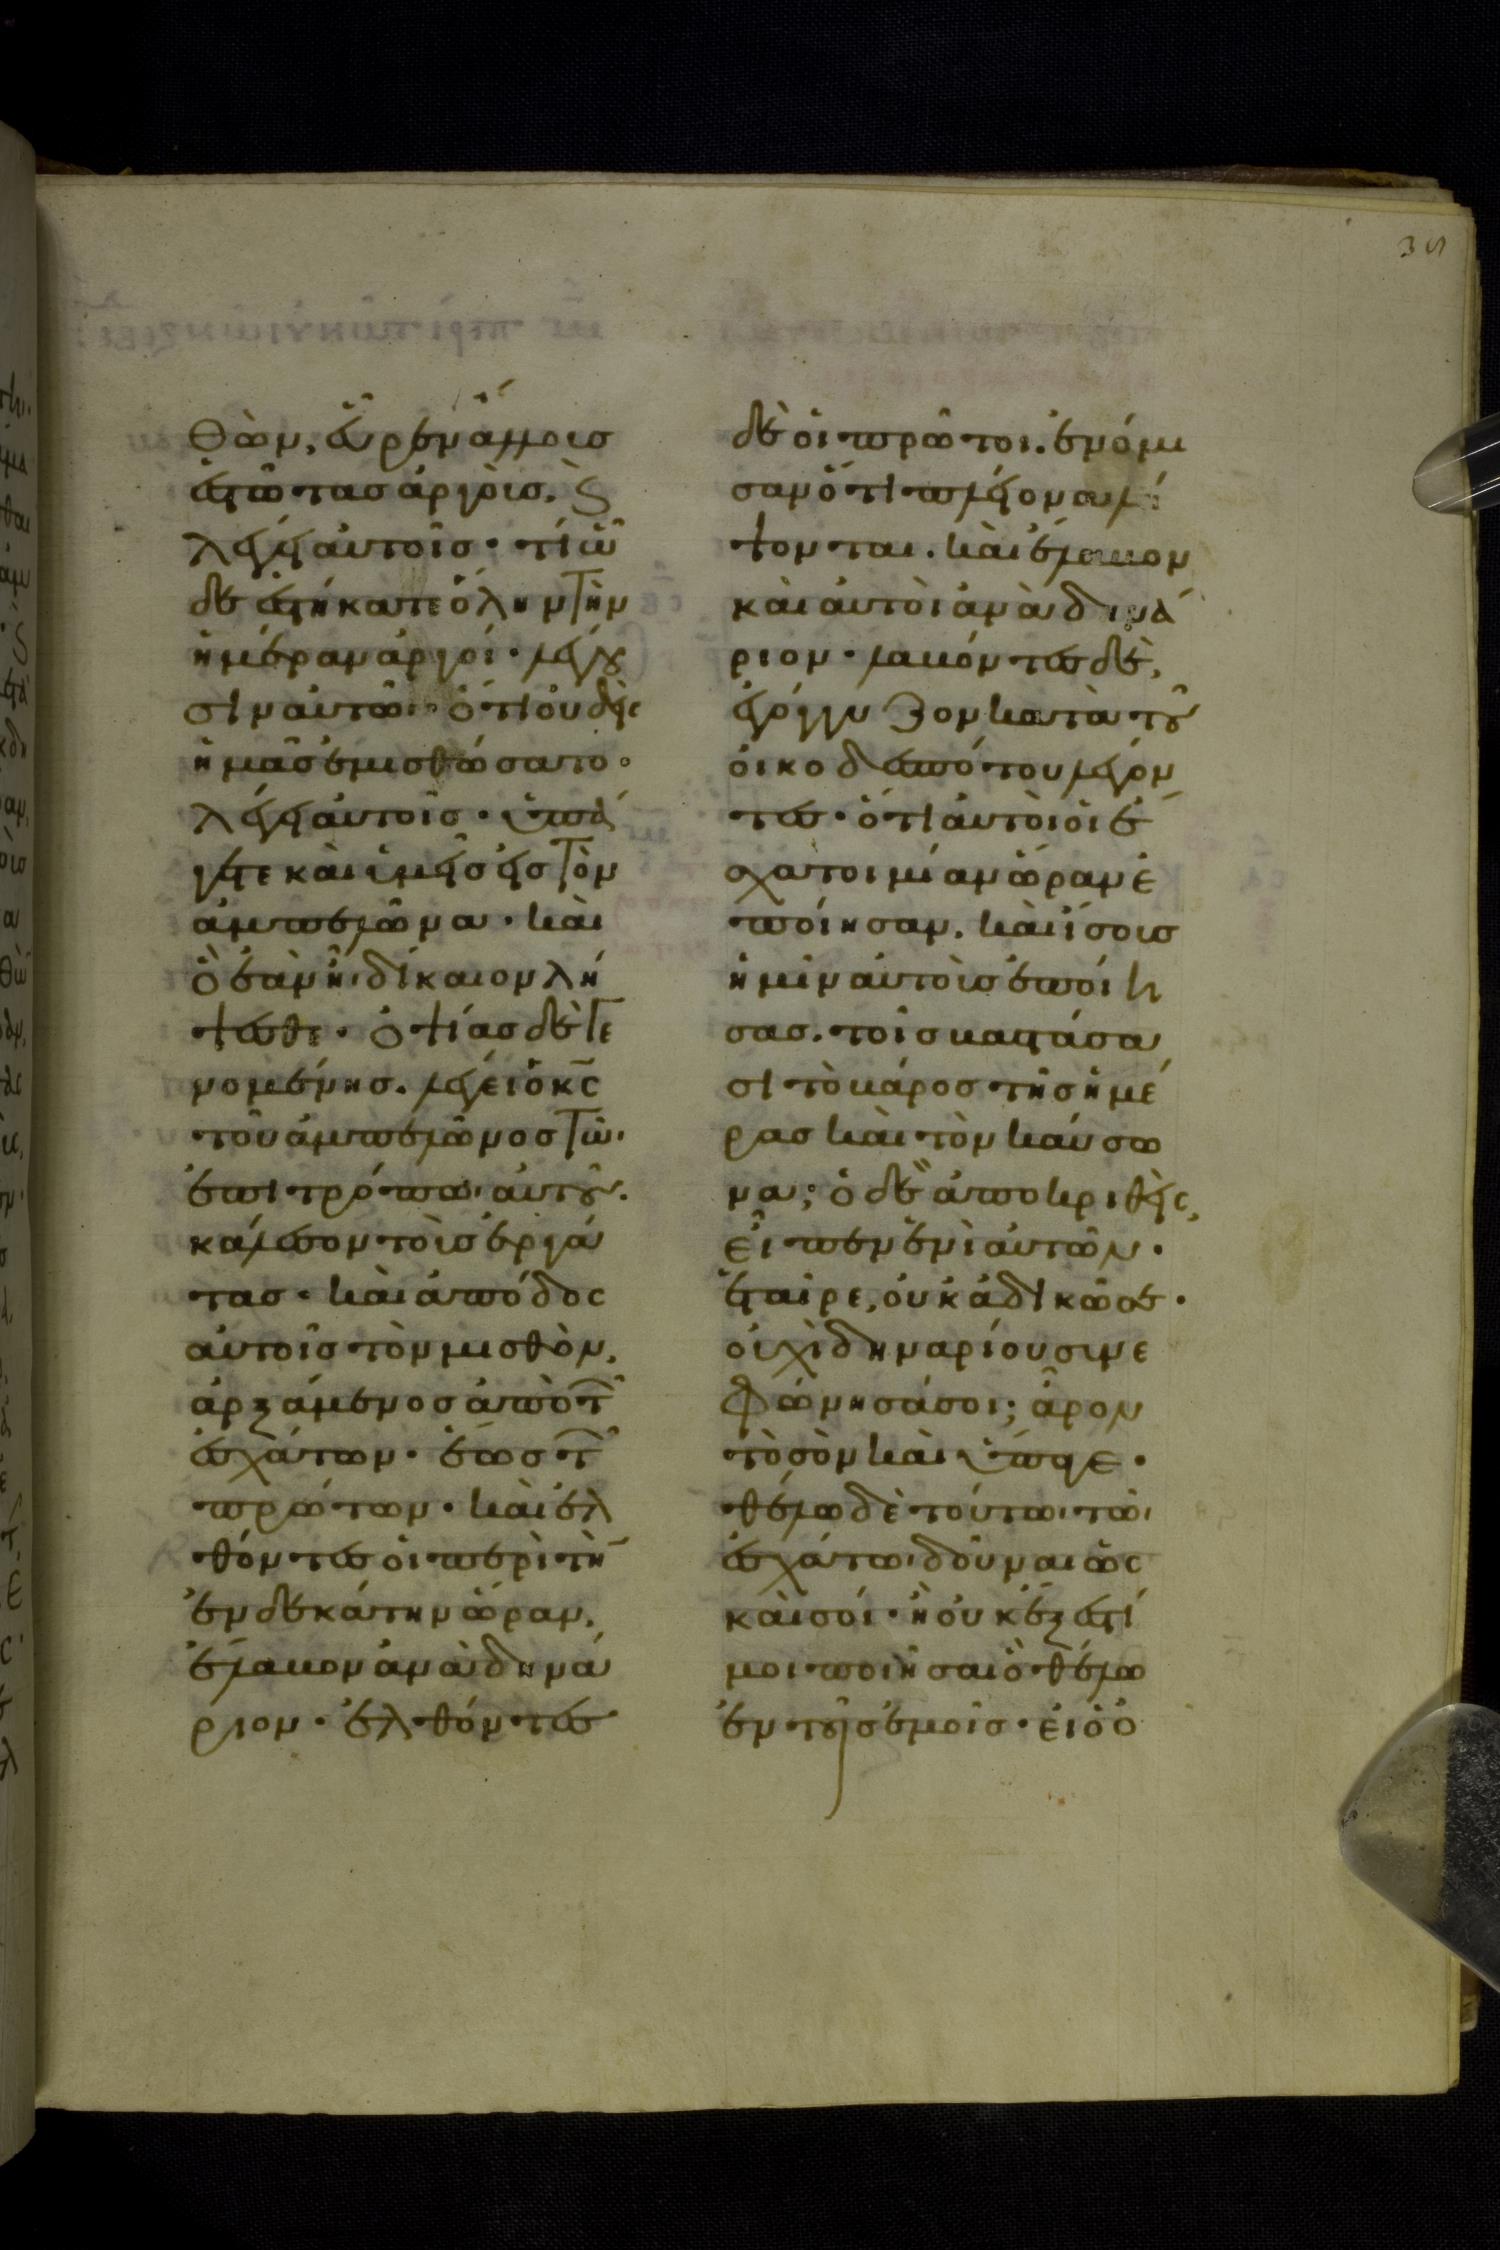 θὼν, εὗρεν ἄλλους
ἑστῶτας ἀργοὺς. ϗ
λέγει αὐτοῖς· τί ὧ
δε ἑστήκατε ὅλην τὴν
ἡμέραν ἀργοί· λέγου
σιν αὐτῶ· ὅτι οὐδεὶς
ἡμᾶς ἐμισθώσατο·
λέγει αὐτοῖς· ὑπά
γετε καὶ ὑμεῖς εἰς τὸν
ἀμπελῶνα· καὶ
ὃ ἐὰν ἦ δίκαιον λή
ψεσθε· ὀψίας δὲ γε
νομένης. λέγει ὁ κς
τοῦ ἀμπελῶνος τῶ
ἐπιτρόπω αὐτοῦ.
κάλεσον τοὺς ἐργά
τας· καὶ ἀπόδος
αὐτοῖς τὸν μισθὸν,
ἀρξάμενος ἀπὸ τ
ἐσχάτων· ἕως τ
πρώτων· καὶ ἐλ
θόντες οἱ περὶ τὴ
ἑνδεκάτην ὥραν,
ἔλαβον ἀνὰ δηνά
ριον· ἐλθόντες
δὲ οἱ πρῶτοι. ἐνόμι
σαν ὅτι πλείονα λή
ψονται. καὶ ἔλαβον
καὶ αὐτοὶ ἀνὰ δηνά
ριον· λαβόντες δὲ,
ἐγόγγυζον κατὰ τοῦ
οἰκοδεσπότου λέγον
τες· ὅτι αὐτοὶ οἱ ἔ
σχατοι μίαν ὥραν ἐ
ποίησαν. καὶ ἴσους
ἡμῖν αὐτοὺς ἐποίη
σας. τοῖς βαστάσα
σι τὸ βάρος τῆς ἡμέ
ρας καὶ τὸν καύσω
να; ὁ δὲ ἀποκριθεὶς,
εἶπεν ἑνὶ αὐτῶν·
ἑταῖρε, οὐκ ἀδικῶ σε·
οὐχὶ δηναρίου συνε
φώνησά σοι; ἆρον
τὸ σὸν καὶ ὕπαγε·
θέλω δὲ τούτω τῶ
ἐσχάτω δοῦναι ὡς
καὶ σοί· ἢ οὐκ ἔξεστί
μοι ποιῆσαι ὃ θέλω
ἐν τοῖς ἐμοῖς· εἰ ὁ ὀ